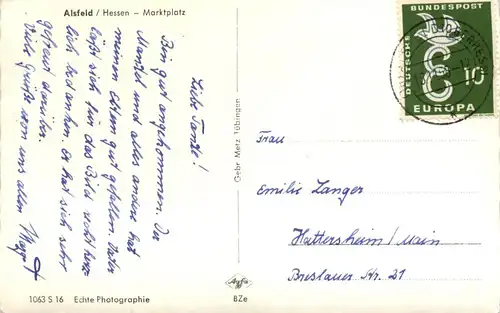 Alsfeld / Hessen – Marktplatz
Liebe Tante!
Bin gut angekommen. Der
Mantel und alles andere hat
meinen Eltern gut gefallen. Vater
läßt sich für das Bild recht herz-
lich bedanken. Er hat sich sehr
gefreut darüber.
Viele Grüße von uns allen
1063 S 16 Echte Photographie
Gebr. Metz Tübingen
Agfa
BZe
DEUTSCHE BUNDESPOST
10
EUROPA
Frau
Emilie Langer
Hattersheim/Main
Breslauer Str. 21